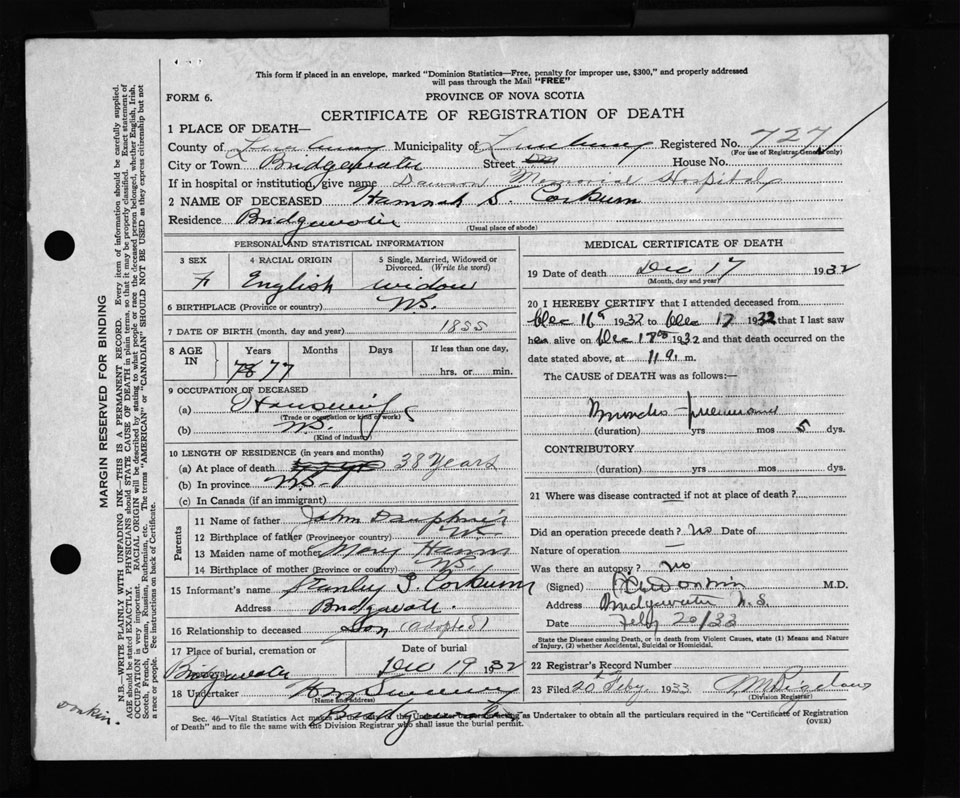 This form if placed in an envelope, marked "Dominion Statistics—Free, penalty for improper use, $300," and properly addressed
will pass through the Mail "FREE"
FORM 6.
PROVINCE OF NOVA SCOTIA
CERTIFICATE OF REGISTRATION OF DEATH
1 PLACE OF DEATH—
County of Lunenburg Municipality of Lunenburg Registered No. 727
(For use of Registrar General only)
City or Town Bridgewater Street House No.
If in hospital or institution, give name Dawson Memorial Hospital
2 NAME OF DECEASED Hannah S. Corkum
Residence Bridgewater
(Usual place of abode)
MARGIN RESERVED FOR BINDING
N.B.—WRITE PLAINLY WITH UNFADING INK—THIS IS A PERMANENT RECORD. Every item of information should be carefully supplied.
AGE should be stated EXACTLY. PHYSICIANS should STATE CAUSE OF DEATH in plain terms, so that it may be properly classified. Exact statement of
OCCUPATION is very important. RACIAL ORIGIN will be described by stating to what people or race the deceased person belonged, whether English, Irish,
Scotch, French, German, Russian, Ruthenian, etc. The terms "AMERICAN" or "CANADIAN" SHOULD NOT BE USED as they express citizenship but not
a race or people. See instructions on back of Certificate.
PERSONAL AND STATISTICAL INFORMATION
3 SEX 4 RACIAL ORIGIN 5 Single, Married, Widowed or
Divorced. (Write the word)
F English widow
6 BIRTHPLACE (Province or country) N.S.
7 DATE OF BIRTH (month, day and year) 1855
8 AGE IN Years Months Days If less than one day,
78 77 hrs. or min.
9 OCCUPATION OF DECEASED
(a) Housewife
(Trade or occupation or kind of work)
(b) N.S.
(Kind of industry)
10 LENGTH OF RESIDENCE (in years and months)
(a) At place of death 38 years
(b) In province N.S.
(c) In Canada (if an immigrant)
Parents
11 Name of father John Dauphinee
12 Birthplace of father (Province or country) N.S.
13 Maiden name of mother Mary Hamm
14 Birthplace of mother (Province or country) N.S.
15 Informant's name Stanley G. Corkum
Address Bridgewater.
16 Relationship to deceased Son (adopted)
17 Place of burial, cremation or Date of burial
Bridgewater Dec 19 1932
18 Undertaker Sweeney
(Name and address)
Bridgewater
MEDICAL CERTIFICATE OF DEATH
19 Date of death Dec 17 1932
(Month, day and year)
20 I HEREBY CERTIFY that I attended deceased from
Dec 16 1932 to Dec 17 1932 that I last saw
her alive on Dec 1932 and that death occurred on the
date stated above, at 11 a. m.
The CAUSE of DEATH was as follows:—
Broncho-pneumonia
(duration) yrs mos 5 dys.
CONTRIBUTORY
(duration) yrs mos dys.
21 Where was disease contracted if not at place of death?
Did an operation precede death? no Date of
Nature of operation —
Was there an autopsy? no
(Signed) M.D.
Address Bridgewater N.S.
Date Feby 20/33
State the Disease causing Death, or in death from Violent Causes, state (1) Means and Nature
of Injury, (2) whether Accidental, Suicidal or Homicidal.
22 Registrar's Record Number
23 Filed 20th Feby. 1933
(Division Registrar)
Sec. 46—Vital Statistics Act makes it the duty of the Undertaker or person acting as Undertaker to obtain all the particulars required in the "Certificate of Registration
of Death" and to file the same with the Division Registrar who shall issue the burial permit. (OVER)